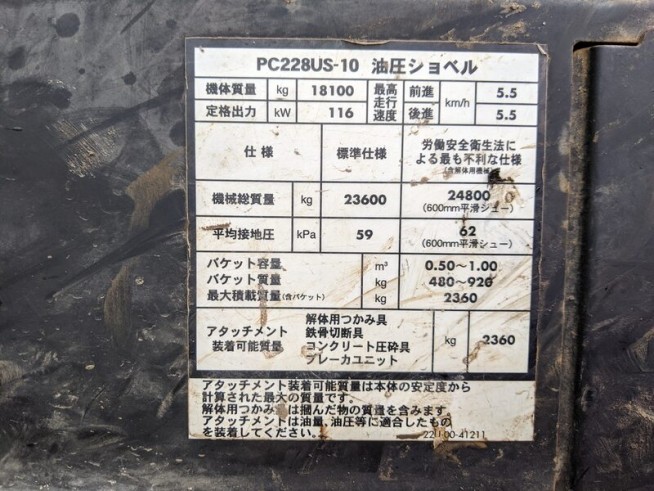 PC228US-10 油圧ショベル
機体質量 kg 18100 最高走行速度 前進 km/h 5.5
定格出力 kW 116 後進 5.5
仕様 標準仕様 労働安全衛生法に
よる最も不利な仕様
(含解体用機械)
機械総質量 kg 23600 24800
(600mm平滑シュー)
平均接地圧 kPa 59 62
(600mm平滑シュー)
バケット容量 m³ 0.50～1.00
バケット質量 kg 480～920
最大積載質量(含バケット) kg 2360
アタッチメント
装着可能質量
解体用つかみ具
鉄骨切断具
コンクリート圧砕具
ブレーカユニット
kg 2360
アタッチメント装着可能質量は本体の安定度から
計算された最大の質量です。
解体用つかみ は掴んだ物の質量を含みます
アタッチメントは油量、油圧等に適合したもの
を装着してください。
22U-00-41211